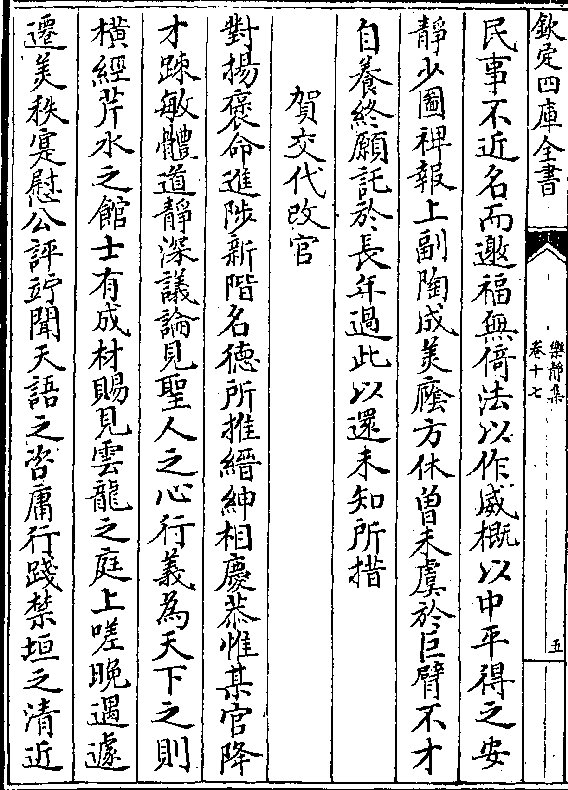 欽定四庫全書
樂靜集
卷十七
五
民事不近名而邀福無倚法以作威概以中平得之安
靜少圖裨報上副陶成美廕方休曽未虞於巨臂不才
自養終願託於長年過此以還未知所措
賀交代改官
對揚褒命進陟新階名德所推縉紳相慶恭惟某官降
才踈敏體道靜深議論見聖人之心行義為天下之則
橫經芹水之館士有成材賜見雲龍之庭上嗟晚遇遽
遷美秩寔慰公評竚聞天語之咨庸行踐禁垣之清近